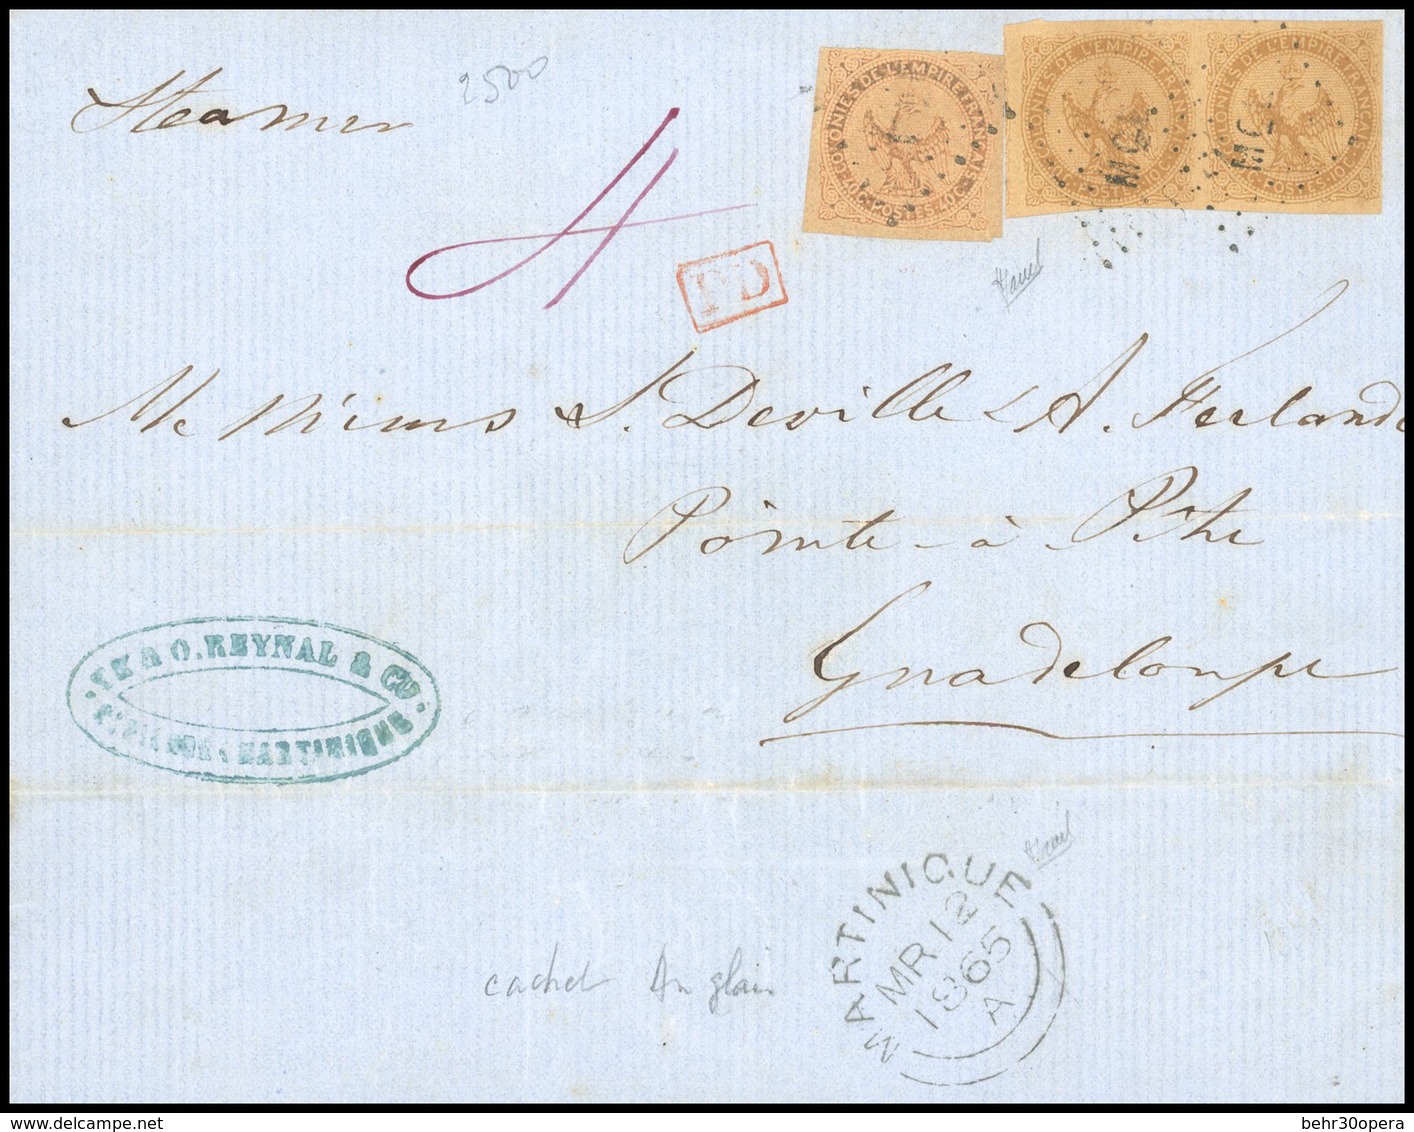 Steamer
2500
COLONIES DE L'EMPIRE FRANÇAIS
POSTES
COLONIES DE L'EMPIRE FRANÇAIS
POSTES·10·C
COLONIES DE L'EMPIRE FRANÇAIS
POSTES·10·C
MQE
MQE
4
PD
S. Deville & A. Ferlande
Pointe-à-Pitre
Guadeloupe
& O. REYNAL & CO.
MARTINIQUE
MARTINIQUE
MR 12
1865
A
cachet Anglais
behr30opera